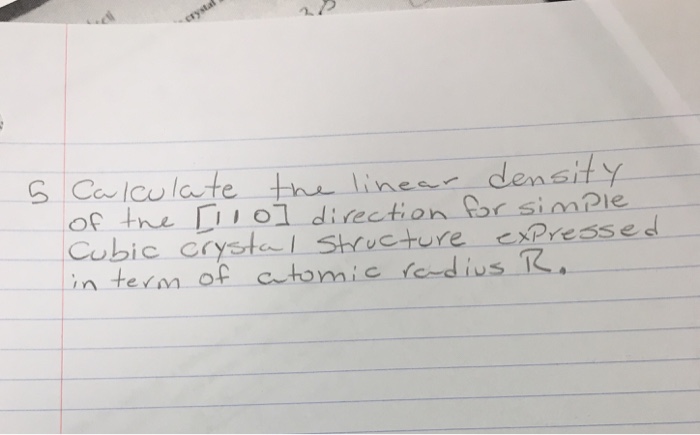 crystal
5 Calculate the linear density
of the [110] direction for simple
Cubic crystal structure expressed
in term of atomic radius R.